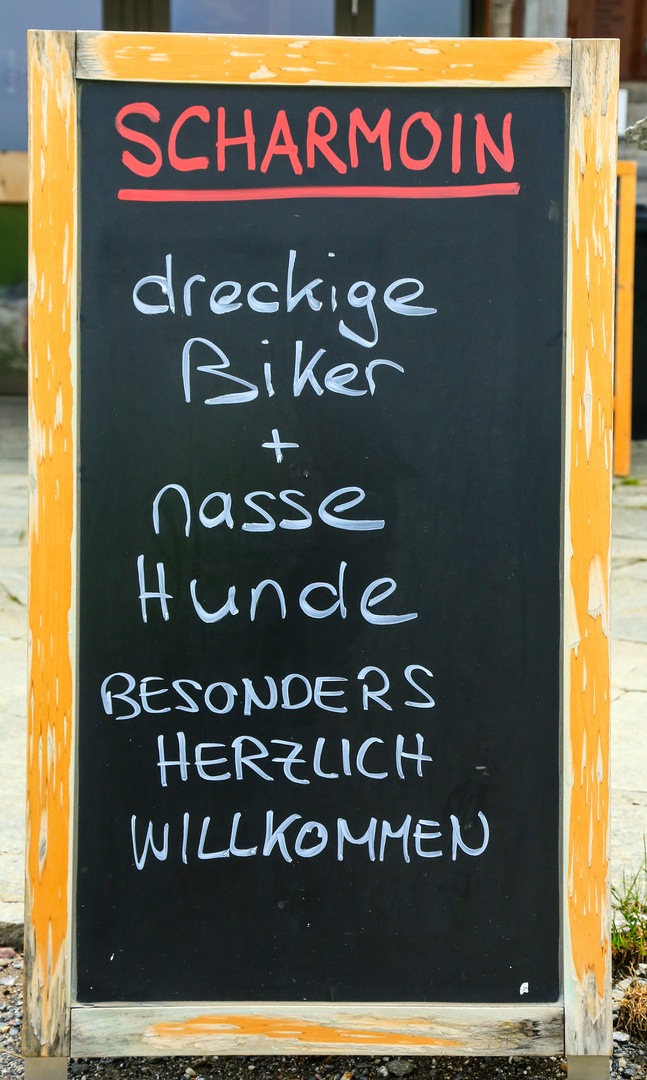 SCHARMOIN
dreckige
Biker
+
nasse
Hunde
BESONDERS
HERZLICH
WILLKOMMEN